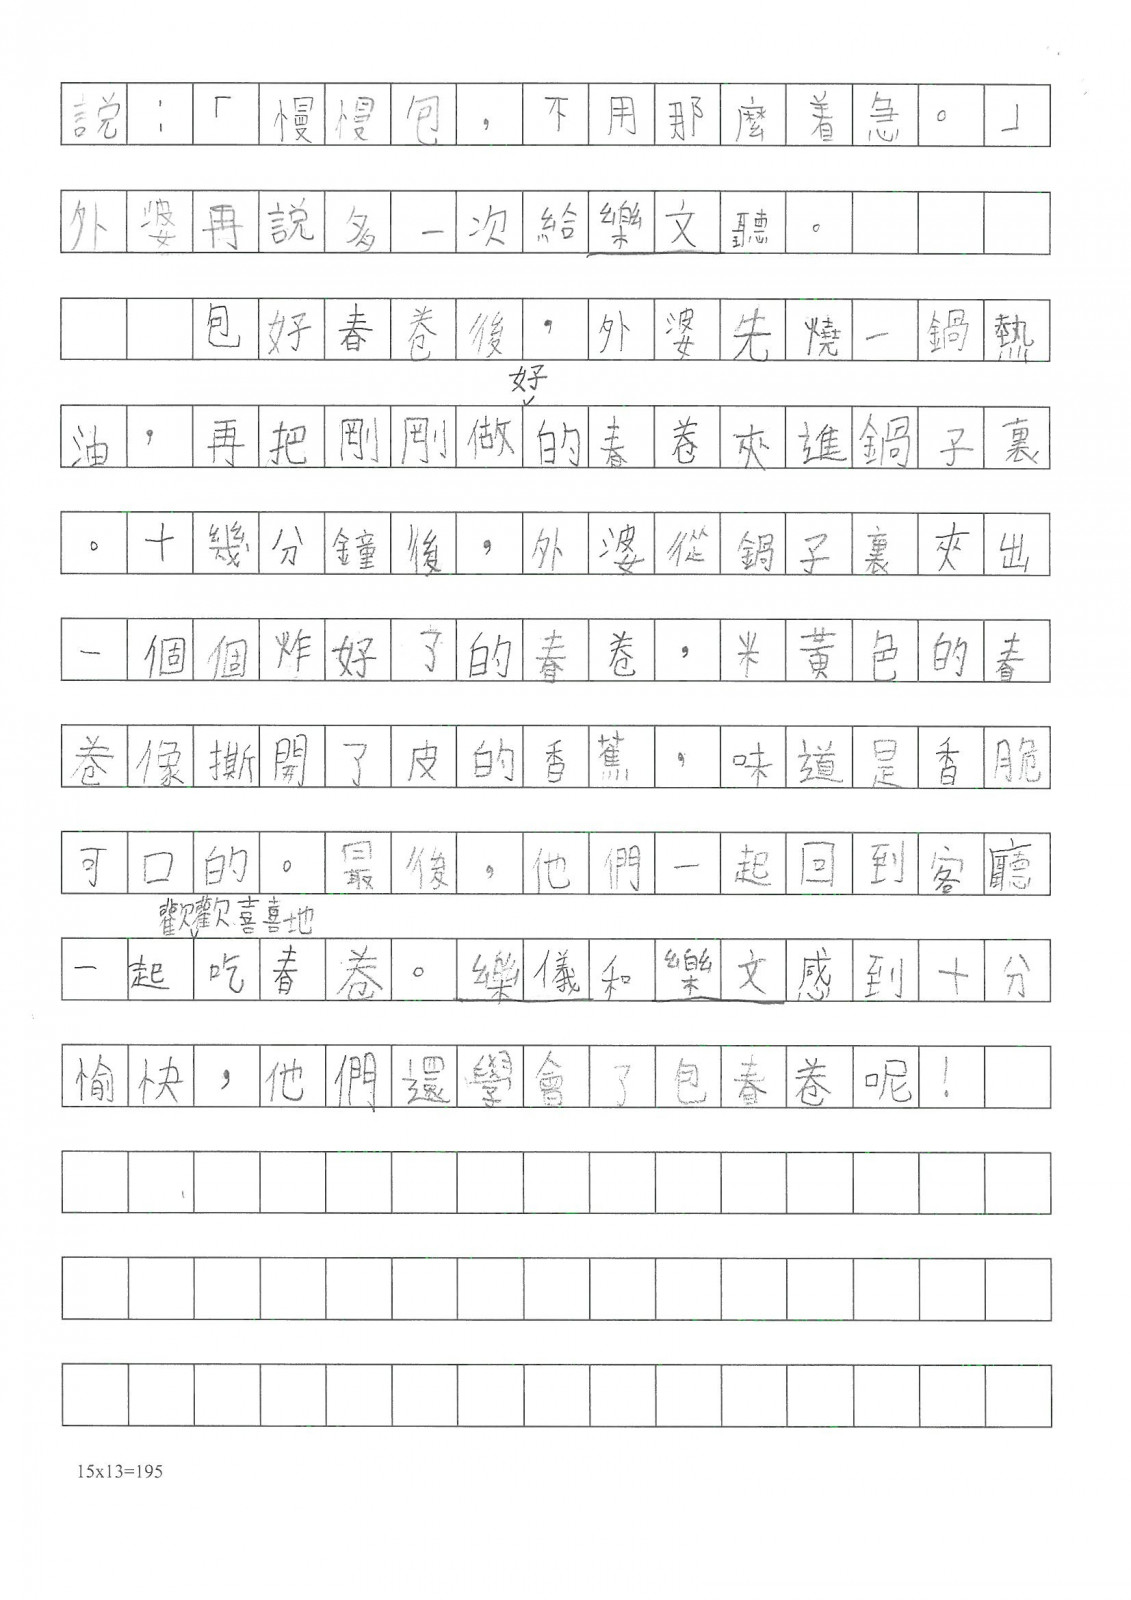 說：「慢慢包，不用那麼着急。」
外婆再說多一次給樂文聽。
包好春卷後，外婆先燒一鍋熱
好
油，再把剛剛做的春卷夾進鍋子裏
。十幾分鐘後，外婆從鍋子裏夾出
一個個炸好了的春卷，米黃色的春
卷像撕開了皮的香蕉，味道是香脆
可口的。最後，他們一起回到客廳
歡歡喜喜地
一起吃春卷。樂儀和樂文感到十分
愉快，他們還學會了包春卷呢！
15x13=195